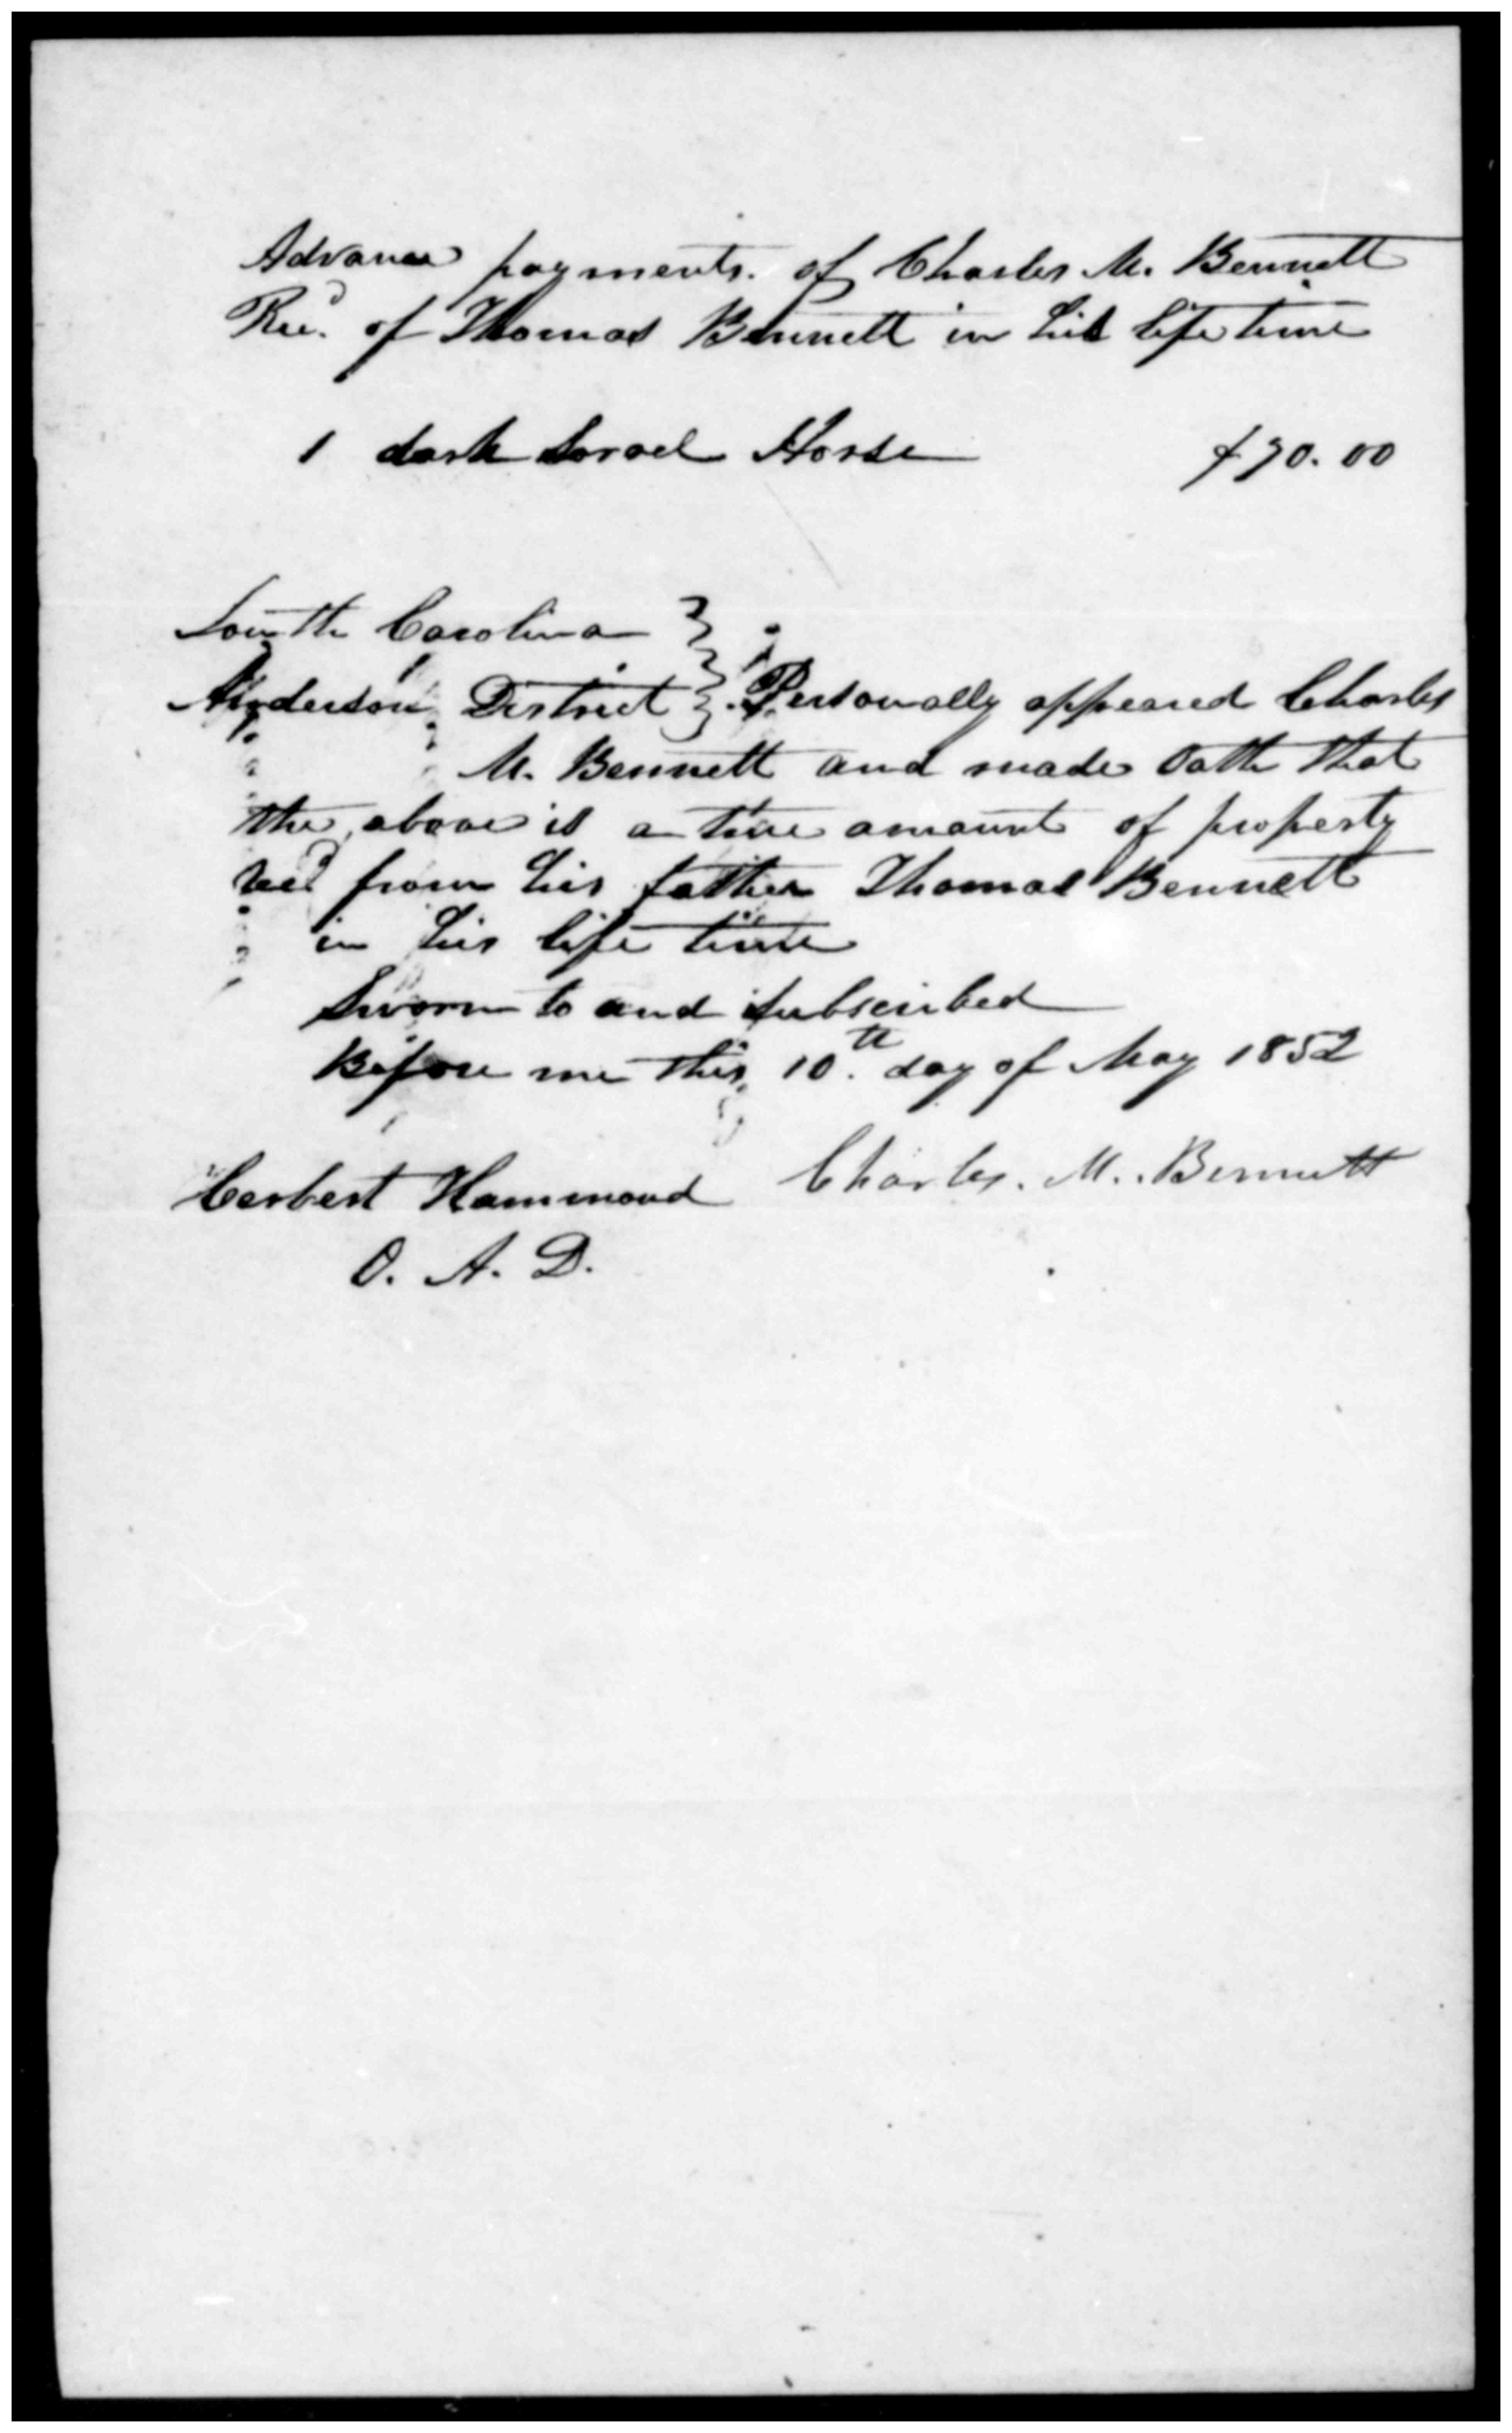 Advance payments. of Charles M. Bennett
Rec.d of Thomas Bennett in his life time
1 dark Sorael Horse $90.00
South Carolina }
Anderson District } Personally appeared Charles
M. Bennett and made Oath that
the above is a true amount of property
recd from his father Thomas Bennett
in his life time
Sworn to and subscribed
Before me this 10th day of May 1852
Herbert Hammond Charles. M. Bennett
O. A. D.